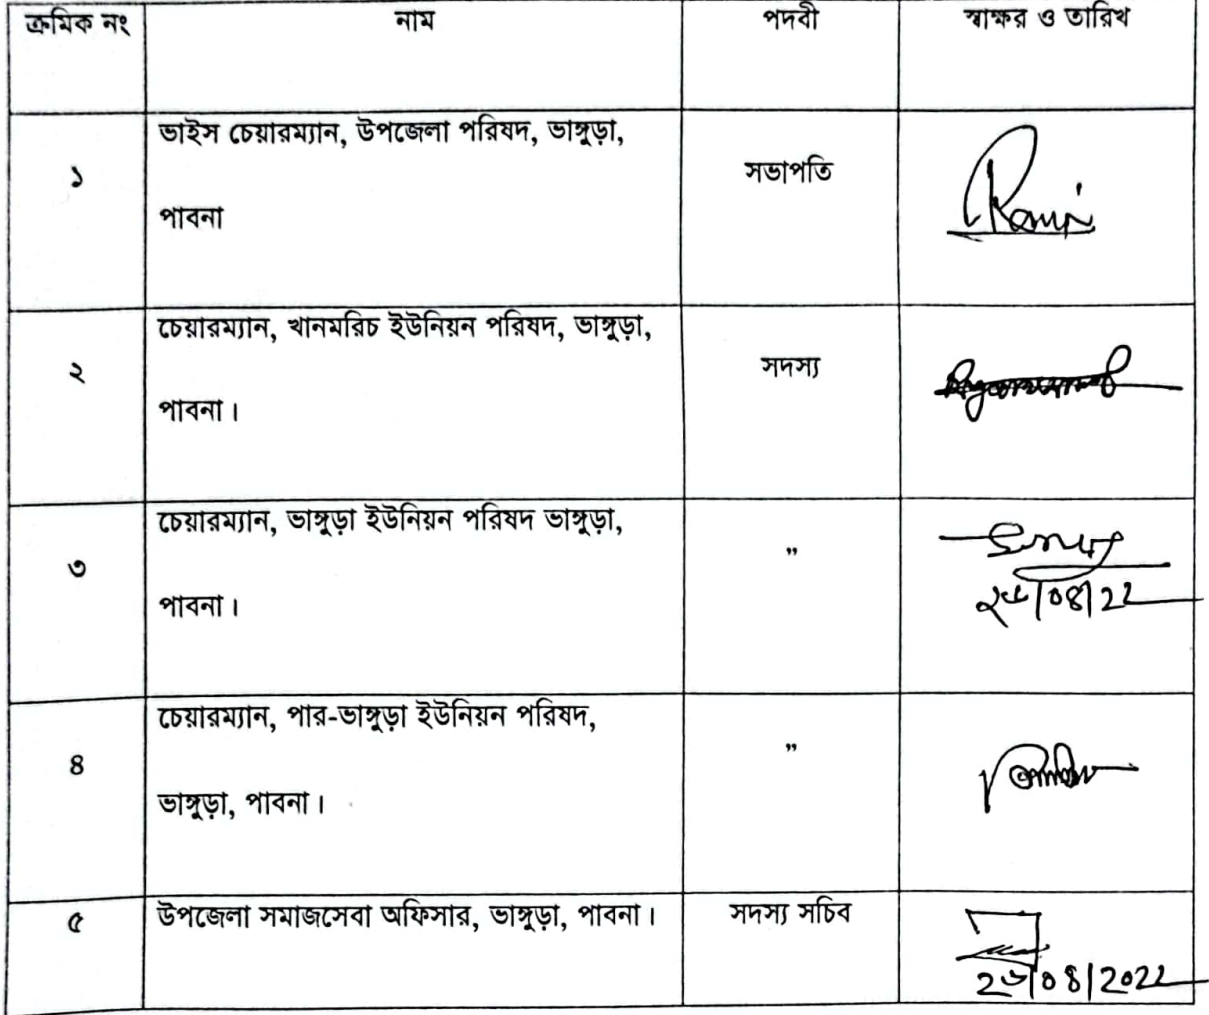 ক্রমিক নং নাম পদবী স্বাক্ষর ও তারিখ
১ ভাইস চেয়ারম্যান, উপজেলা পরিষদ, ভাঙ্গুড়া, সভাপতি
পাবনা
২ চেয়ারম্যান, খানমরিচ ইউনিয়ন পরিষদ, ভাঙ্গুড়া, সদস্য
পাবনা।
৩ চেয়ারম্যান, ভাঙ্গুড়া ইউনিয়ন পরিষদ ভাঙ্গুড়া, ”
পাবনা।
৪ চেয়ারম্যান, পার-ভাঙ্গুড়া ইউনিয়ন পরিষদ, ”
ভাঙ্গুড়া, পাবনা।
৫ উপজেলা সমাজসেবা অফিসার, ভাঙ্গুড়া, পাবনা। সদস্য সচিব